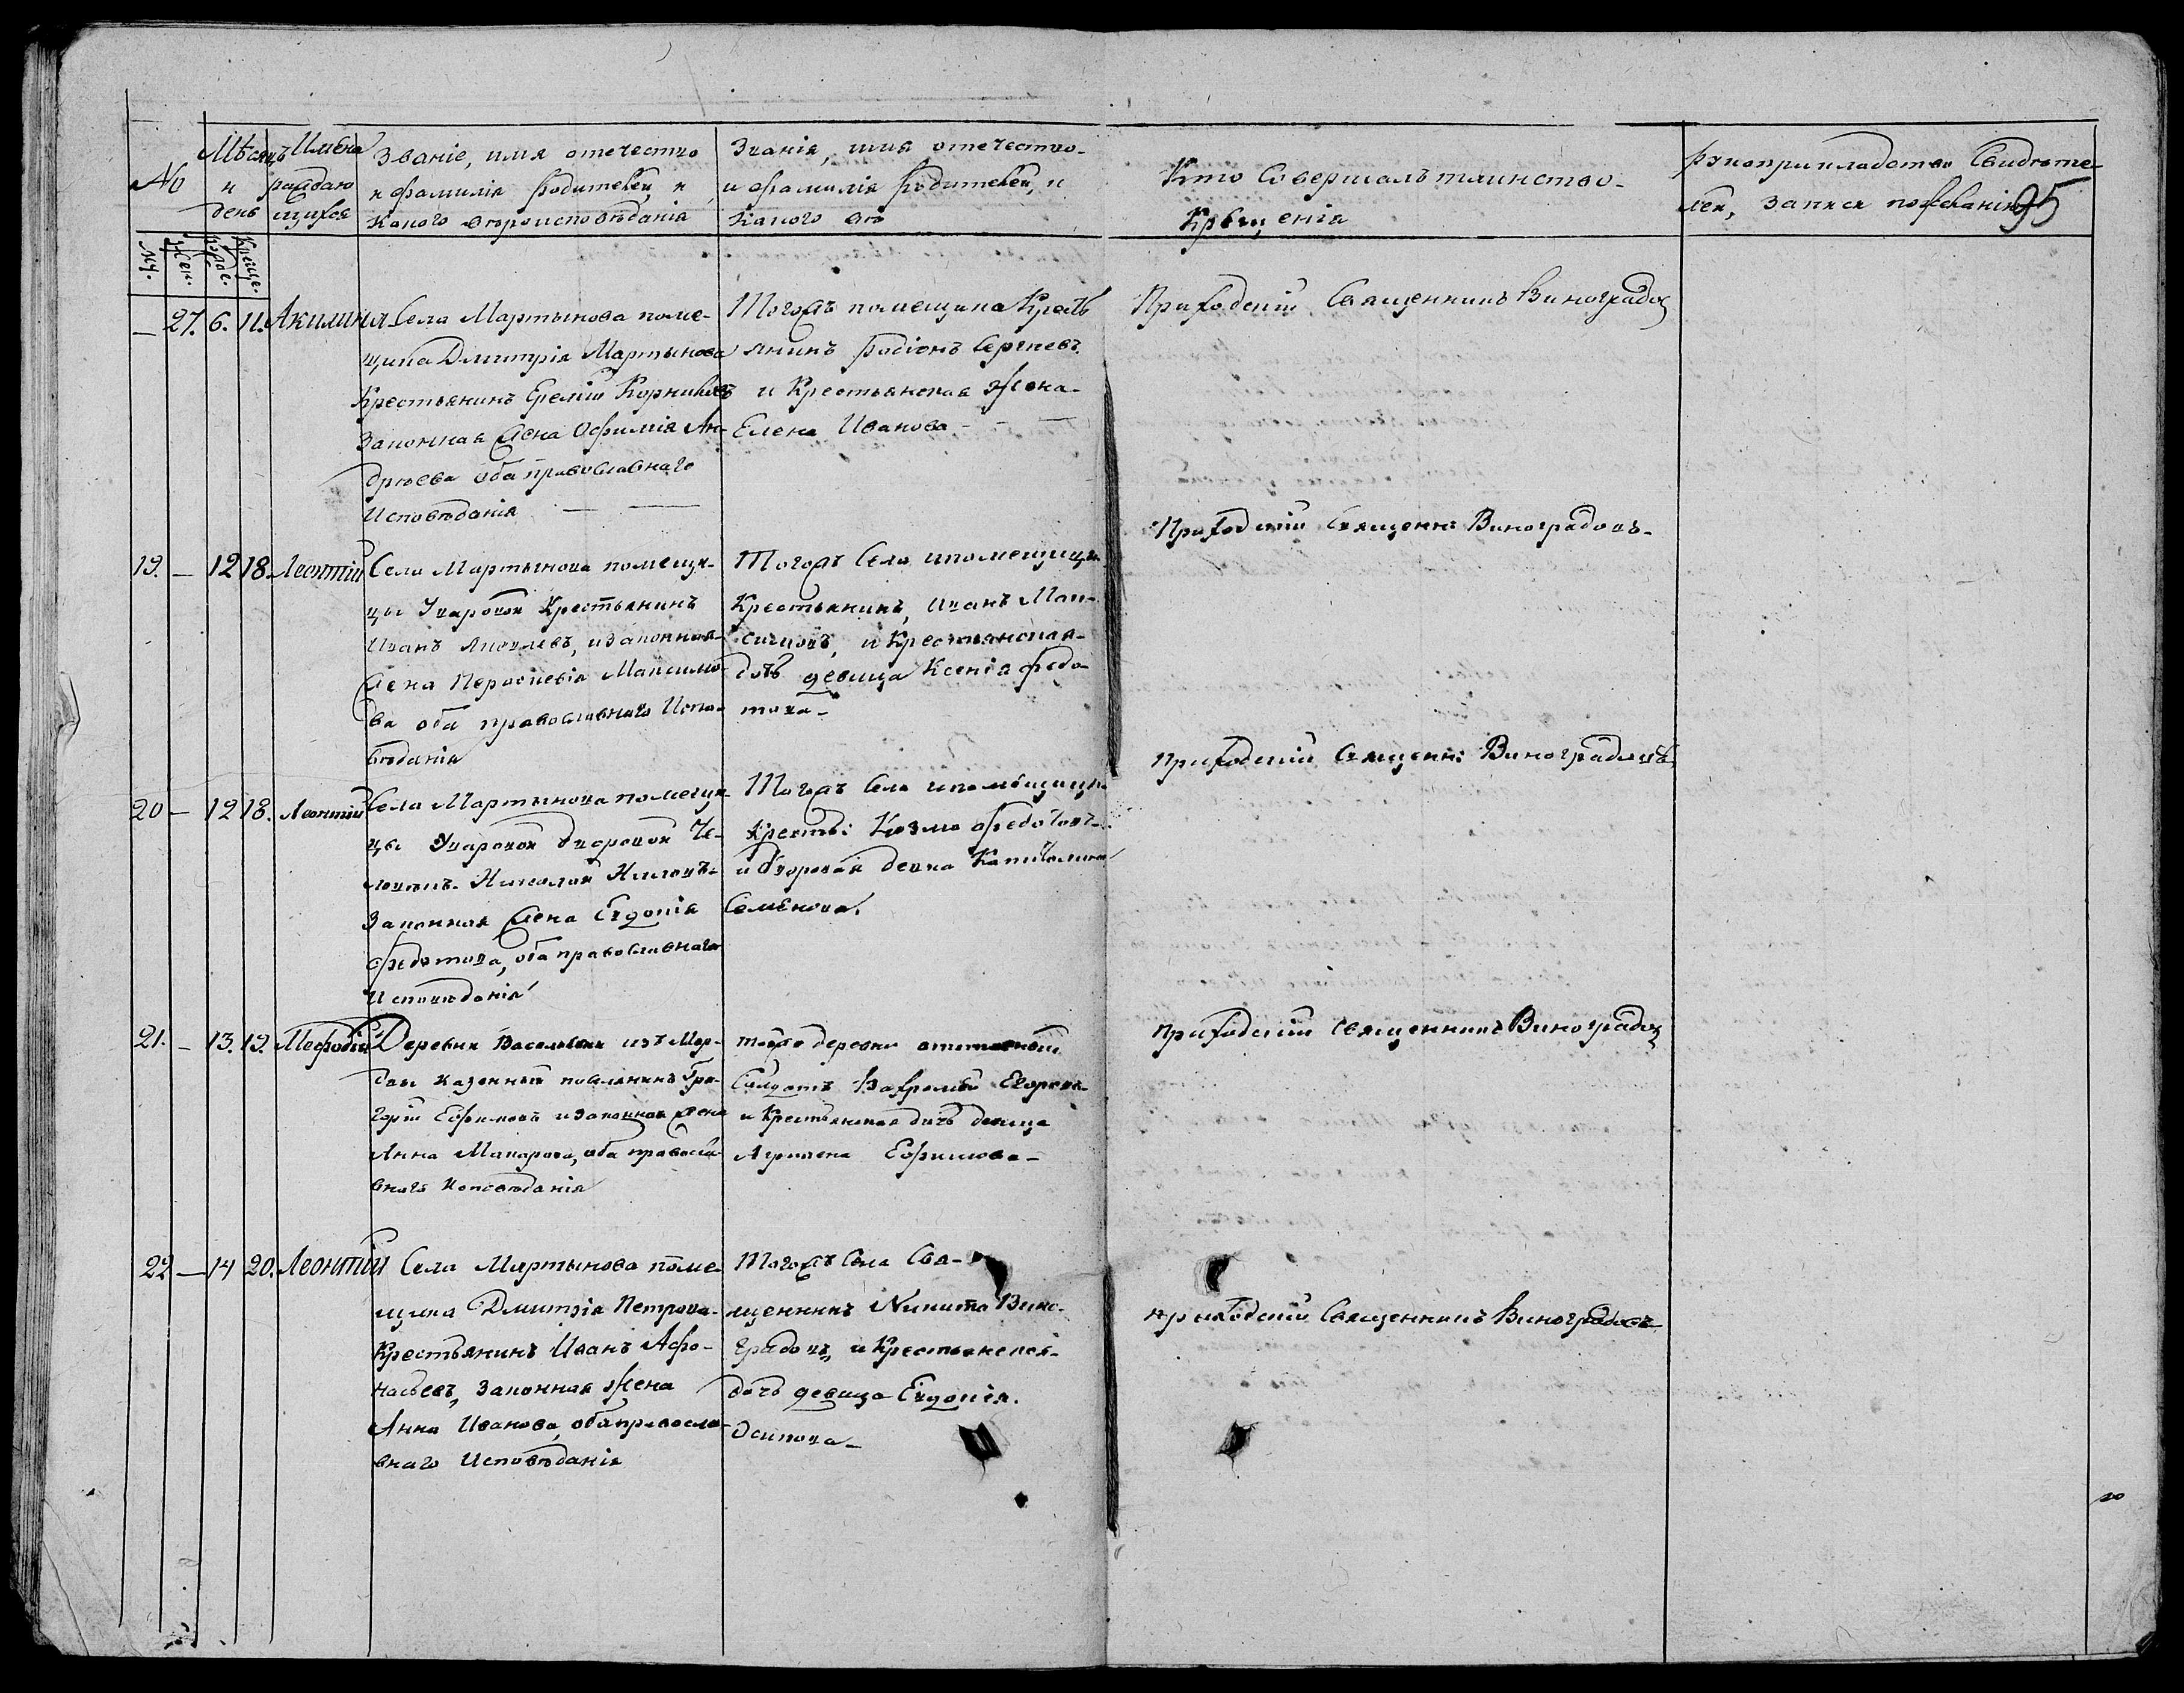 №
Мѣсяцъ
и
день
Имена
раждаю
щихся
Званіе, имя отечество
и фамилія родителей, и
какого вѣроисповѣданія
Званія, имя отечество
и фамилія родителей, и
какого вѣ
Кто Совершалъ таинство
Крещенія
Рукоприкладство Свидѣте
лей, записи по желанію
95
му.
жен.
рожде.
Креще.
— 27. 6. 11. Акилина
Села Мартынова поме-
щика Дмитрія Мартынова
Крестьянинъ Еремій Корниловъ
Законная жена Ефимія Ан
дрѣева оба православнаго
Исповѣданія
Тогожъ помещика Кресть
янинъ Родіонъ Сергѣевъ
и Крестьянская Жена
Елена Иванова
Приходскій Священникъ Виноградов
19. — 12 18. Леонтій
Села Мартынова помещи-
цы Уваровой Крестьянинъ
Иванъ Яковлевъ, и законная
жена Параскевія Максимо
ва оба православнаго Испо-
вѣданія
Тогожъ Села и помещицы
Крестьянинъ, Иванъ Мак-
симовъ, и Крестьянская
дочь девица Ксенія Федо
това
Приходскій Священн: Виноградовъ
20 — 12 18. Леонтій
Села Мартынова помещи-
цы Уваровой дворовой Че-
ловѣкъ Николай Ниловъ
Законная жена Евдокія
Федотова, оба православнаго
Исповѣданія
Тогожъ Села и помѣщицы
Кресть: Козма Федотовъ
и дворовая девка Капитолина
Семенова.
Приходскій Священн: Виноградовъ
21. — 13. 19. Мефодій
Деревни Васильевки изъ Мор-
двы казенный поселянинъ Гри-
горій Ефимовъ и законная жена
Анна Макарова, оба правосла-
внаго Исповѣданія
тойже деревни отставной
Солдатъ Варфоломей Егоровъ
и Крестьянская дочь девица
Агрипена Ефимова
Приходскій Священникъ Виноградов
22 — 14 20. Леонтій
Села Мартынова поме-
щика Дмитрія Петрова
Крестьянинъ Иванъ Афо-
насьевъ, Законная Жена
Анна Иванова, оба правосла-
внаго Исповѣданія
Тогожъ Села Свя-
щенникъ Никита Вино-
градовъ, и Крестьянская
дочь девица Евдокія
Осипова
Приходскій Священникъ Виноградовъ